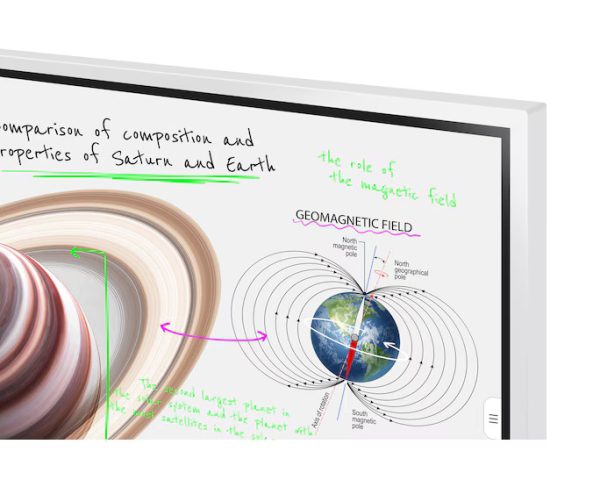 omparison of composition and
roperties of Saturn and Earth
the role of
the magnetic field
GEOMAGNETIC FIELD
North
magnetic
pole
North
geographical
pole
The second largest planet in
the solar system and the planet with
the most satellites in the
Axis of rotation
South
magnetic
pole